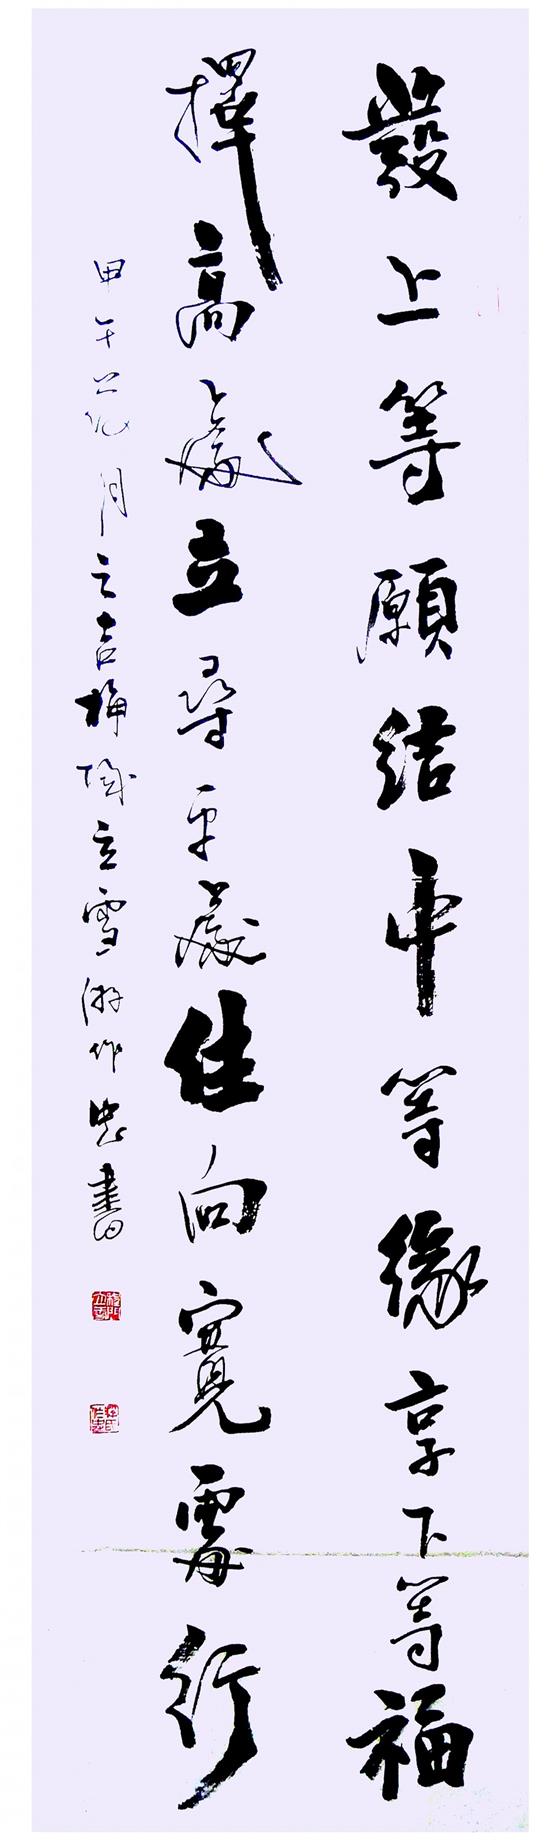 發上等願結中等緣享下等福
擇高處立尋平處住向寬處行
甲午月之吉立雪作忠書